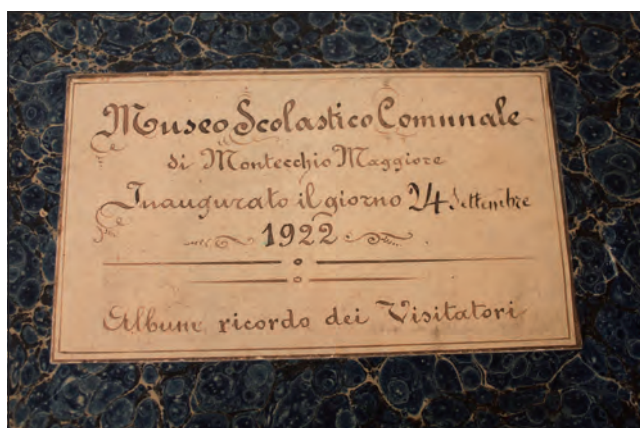 Museo Scolastico Comunale
di Montecchio Maggiore
Inaugurato il giorno 24 Settembre
1922
Album ricordo dei Visitatori